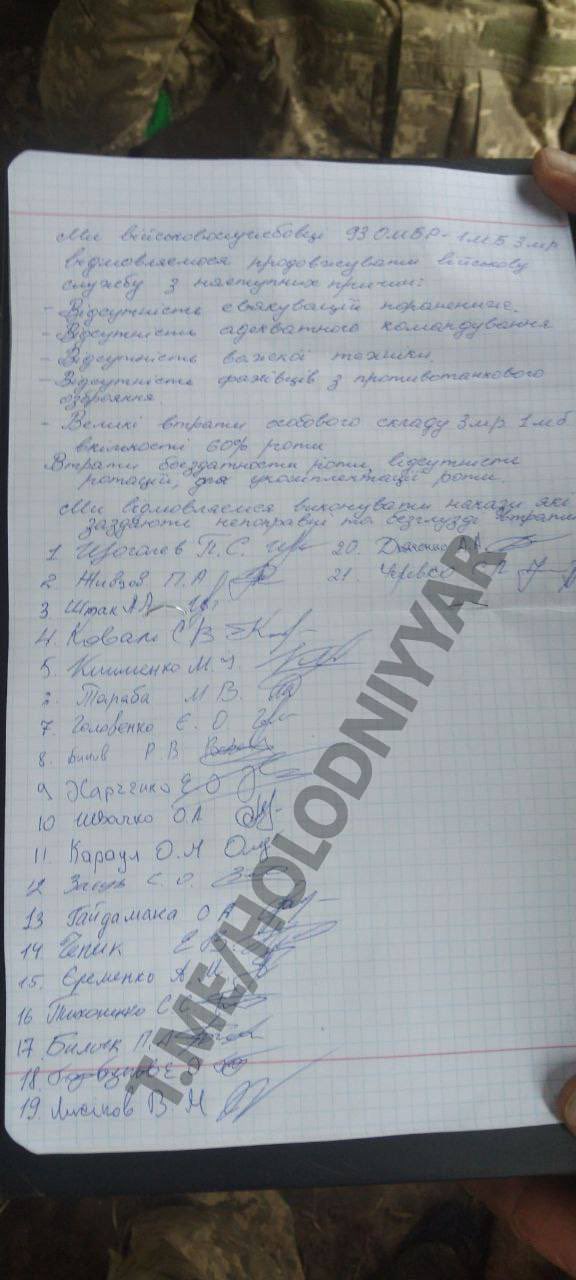 Ми військовослужбовці 93 ОМБР 1МБ 3мр
відмовляемося продовжувати військову
службу з наступних причин:
- Відсутність евякуацій поранених.
- Відсутність адекватного командування
- Відсутність важкої техніки
- Відсутність фахівців з противотанкового
озброяння
- Великі втрати особового складу 3мр 1мб
вкількості 60% роти
Втрати боєздатности роти, відсутність
ротацій, для укомплектації роти.
Ми відмовляемися виконувати накази які
заздають непоправні та безглузді втрати
1 Щоголев П.С. 20. Дяченко А.А.
2. Живцов П.А 21. Черевко
3. Штак А.А
4. Коваль С В
5. Клименко М.
Тараба М В.
7. Головенко Є. О
8. Р В
9 Харченко Е О
10 Швачко О.А
11 Караул О.М
12 С. О.
13 Гайдамака О А
14 Чепик Е В.
15. Єременко А М
16 Тихоненко С.С
17 Билик П.А
18
19. Лисаков В М
T.ME/HOLODNIYYAR